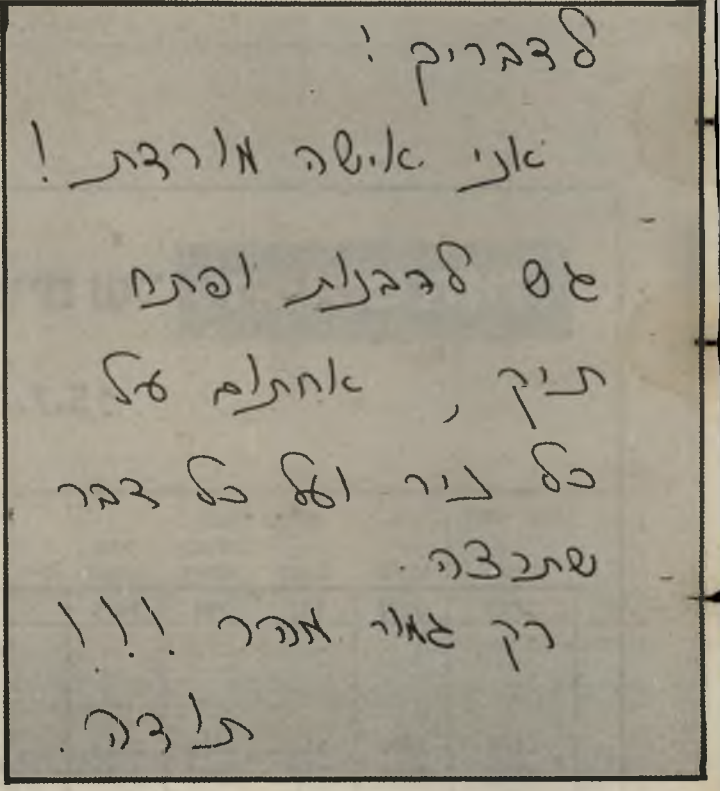 לדבריך !
אני אישה מורדת !
גש לרבנות ופתח
תיק , אחתום על
כל נייר ועל כל דבר
שתרצה .
רק גמור מהר ! ! !
תודה .